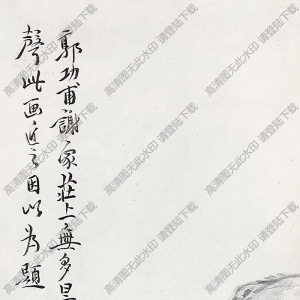 郭功甫謝家莊上無多景
聲此画近之因以為題
高清图无此水印 请登陆下载
高清图无此水印 请登陆下载
高清图无此水印 请登陆下载
高清图无此水印 请登陆下载
高清图无此水印 请登陆下载
高清图无此水印 请登陆下载